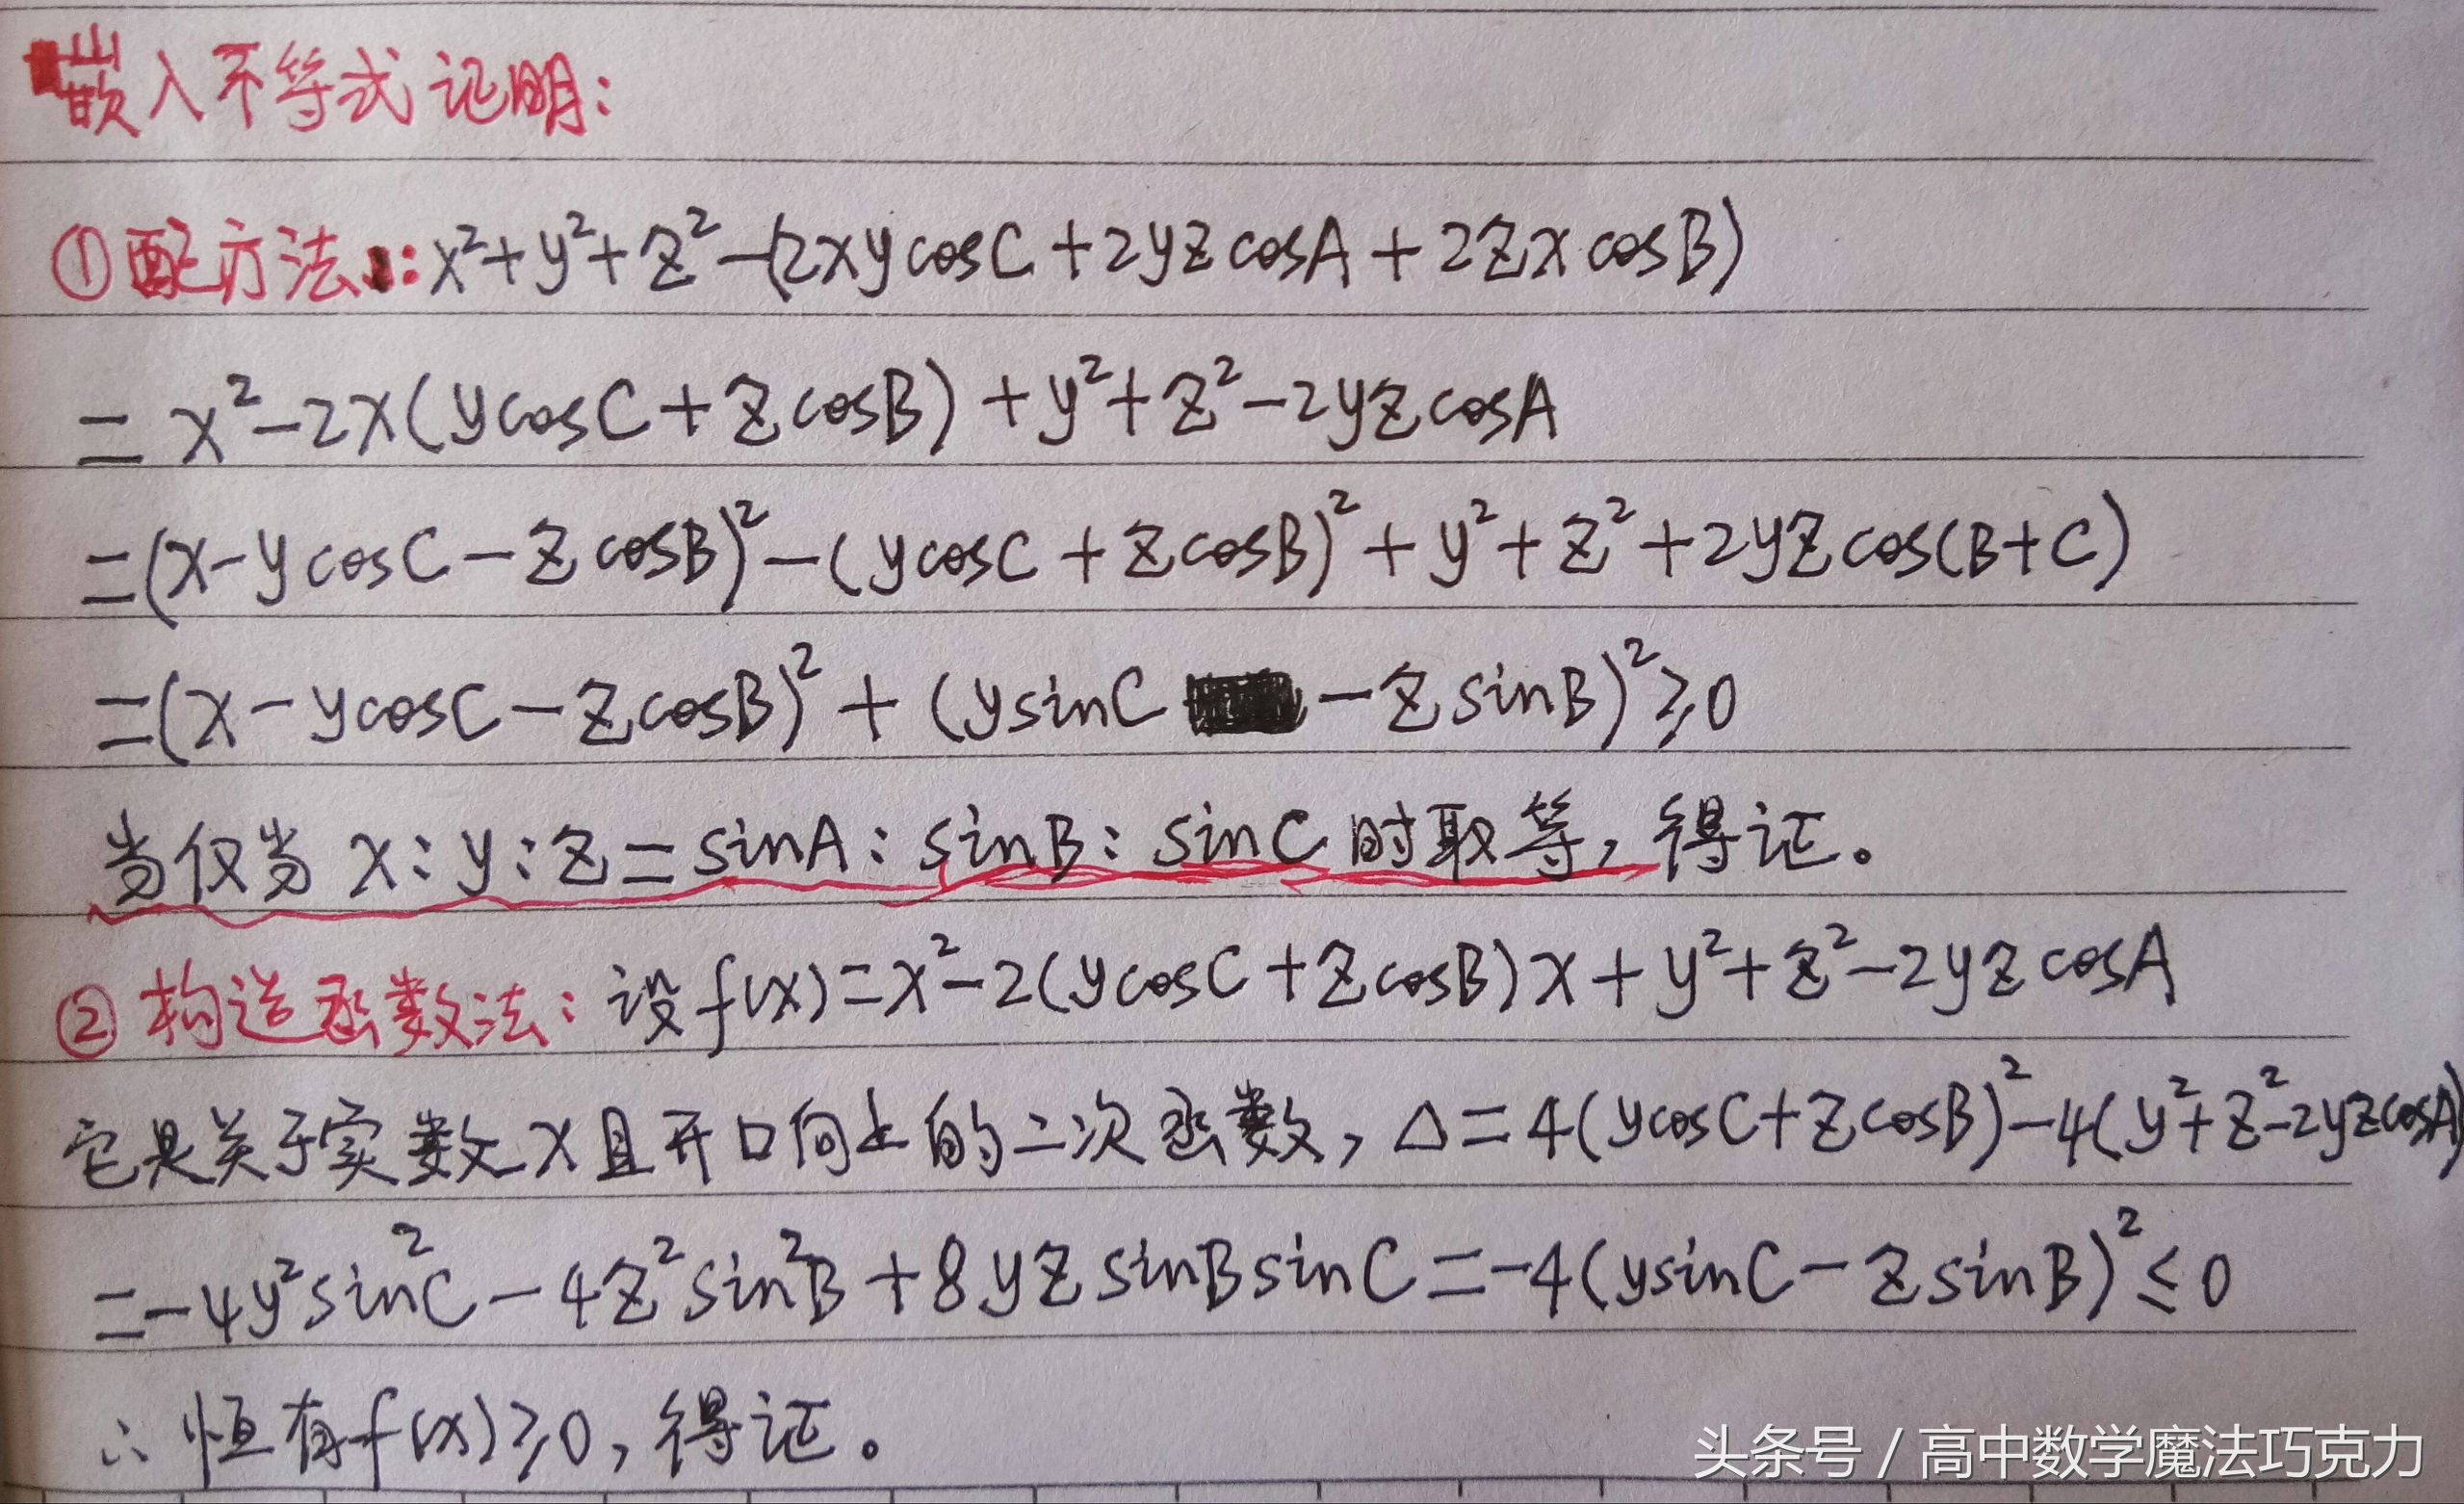 嵌入不等式证明:
①配方法:x²+y²+z²-(2xycosC+2yzcosA+2zxcosB)
=x²-2x(ycosC+zcosB)+y²+z²-2yzcosA
=(x-ycosC-zcosB)²-(ycosC+zcosB)²+y²+z²+2yzcos(B+C)
=(x-ycosC-zcosB)²+(ysinC-zsinB)²≥0
当仅当x:y:z=sinA:sinB:sinC时取等,得证。
②构造函数法:设f(x)=x²-2(ycosC+zcosB)x+y²+z²-2yzcosA
它是关于实数x且开口向上的二次函数,Δ=4(ycosC+zcosB)²-4(y²+z²-2yzcosA)
=-4y²sin²C-4z²sin²B+8yzsinBsinC=-4(ysinC-zsinB)²≤0
∴恒有f(x)≥0,得证。
头条号/高中数学魔法巧克力